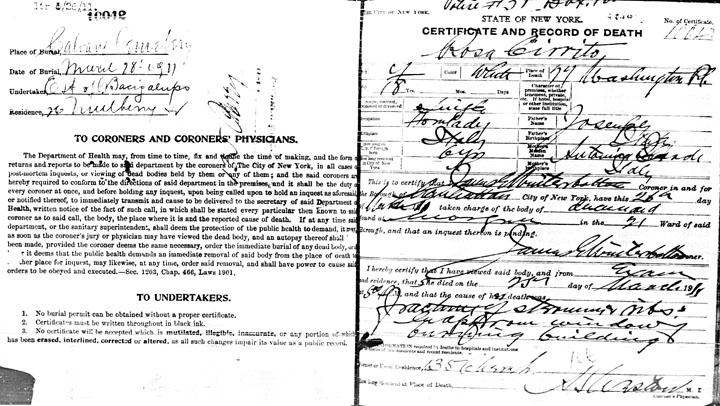 10042
Place of Burial, Calvary Cemetery
Date of Burial, March 28 1911
Undertaker, Est of Bacigalupo
Residence, 26 Mulberry St
TO CORONERS AND CORONERS' PHYSICIANS.
The Department of Health may, from time to time, fix and name the time of making, and the form
returns and reports to be made to said department by the coroners of The City of New York, in all cases
post-mortem inquests, or viewing of dead bodies held by them or any of them; and the said coroners a
hereby required to conform to the directions of said department in the premises, and it shall be the duty
every coroner at once, and before holding any inquest, upon being called upon to hold an inquest as aforesaid
or notified thereof, to immediately transmit and cause to be delivered to the secretary of said Department
Health, written notice of the fact of such call, in which shall be stated every particular then known to said
coroner as to said call, the body, the place where it is and the reported cause of death. If at any time said
department, or the sanitary superintendent, shall deem the protection of the public health to demand, it may
as soon as the coroner's jury or physician may have viewed the dead body, and an autopsy thereof shall
been made, provided the coroner deems the same necessary, order the immediate burial of any dead body, or
it deems that the public health demands an immediate removal of said body from the place of death to
other place for inquest, may likewise, at any time, order said removal, and shall have power to cause said
orders to be obeyed and executed.—Sec. 1203, Chap. 466, Laws 1901.
TO UNDERTAKERS.
1. No burial permit can be obtained without a proper certificate.
2. Certificates must be written throughout in black ink.
3. No certificate will be accepted which is mutilated, illegible, inaccurate, or any portion of which
has been erased, interlined, corrected or altered, as all such changes impair its value as a public record.
THE CITY OF NEW YORK.
STATE OF NEW YORK.
No. of Certificate,
CERTIFICATE AND RECORD OF DEATH
10042
Rosa Cirrito
Color White Place of Death 29 Washington Pl.
18 Yrs. Mos. Days
Character of premises, whether tenement, private, etc. If hotel, hospital or other institution, state full title
Single
Father's Name Joseph
Italy
Father's Birthplace Italy
Mother's Maiden Name Antonina
Mother's Birthplace Italy
This is to certify that I, James E Winterbottom Coroner in and for
Manhattan City of New York, have this 26th day
taken charge of the body of deceased
in the 21 Ward of said
Borough, and that an inquest thereon is pending.
James E Winterbottom Coroner.
I hereby certify that I have viewed said body, and from Exam
and evidence, that she died on the 25th day of March 1911
and that the cause of her death was
Fracture of sternum & ribs
window
burning building
INFORMATION required in deaths in hospitals and institutions
and in those of non-residents and recent residents.
Former or Usual Residence, 135
How long resident at Place of Death,
M. D.
Coroner's Physician.